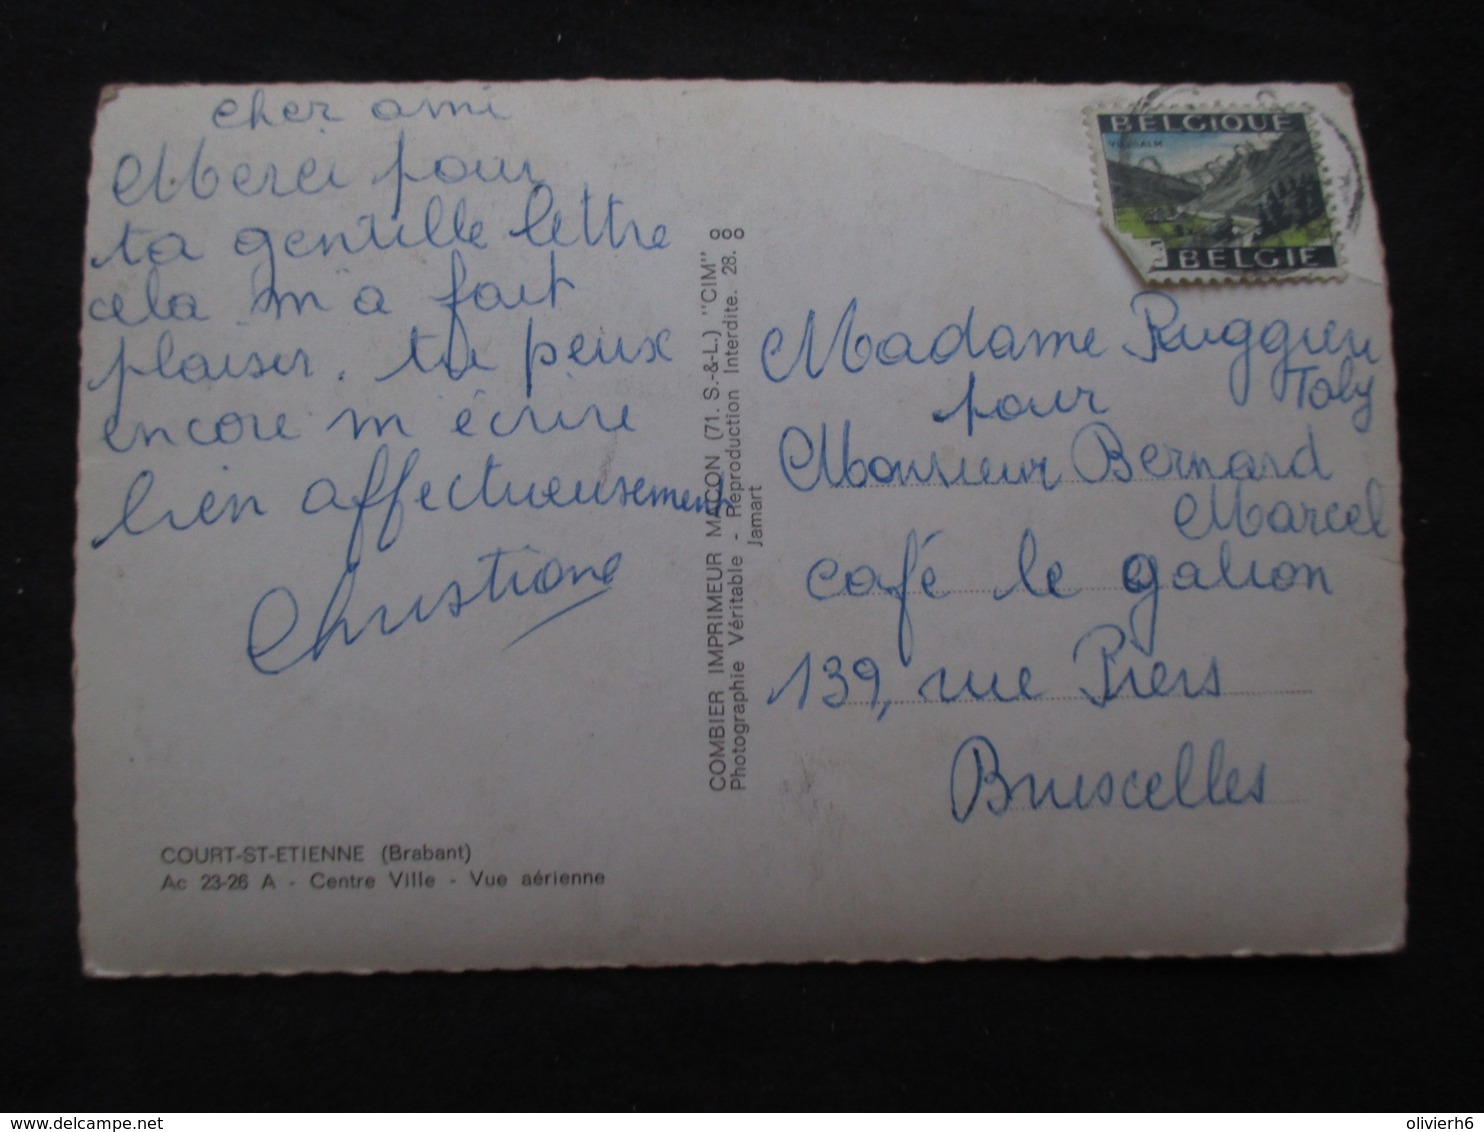 cher ami
Merci pour
ta gentille lettre
cela m a fait
plaisir. tu peux
encore m écrire
bien affectueusement
Christiane
COURT-ST-ETIENNE (Brabant)
Ac 23-26 A - Centre Ville - Vue aérienne
COMBIER IMPRIMEUR MACON (71. S.-&-L.) "CIM"
Photographie Véritable - Reproduction Interdite. 28.
Jamart
BELGIQUE
BELGIE
Madame Ruggieu
Toby
pour
Monsieur Bernard
Marcel
café le galion
139, rue Piers
Bruxcelles
delcampe.net
olivierh6